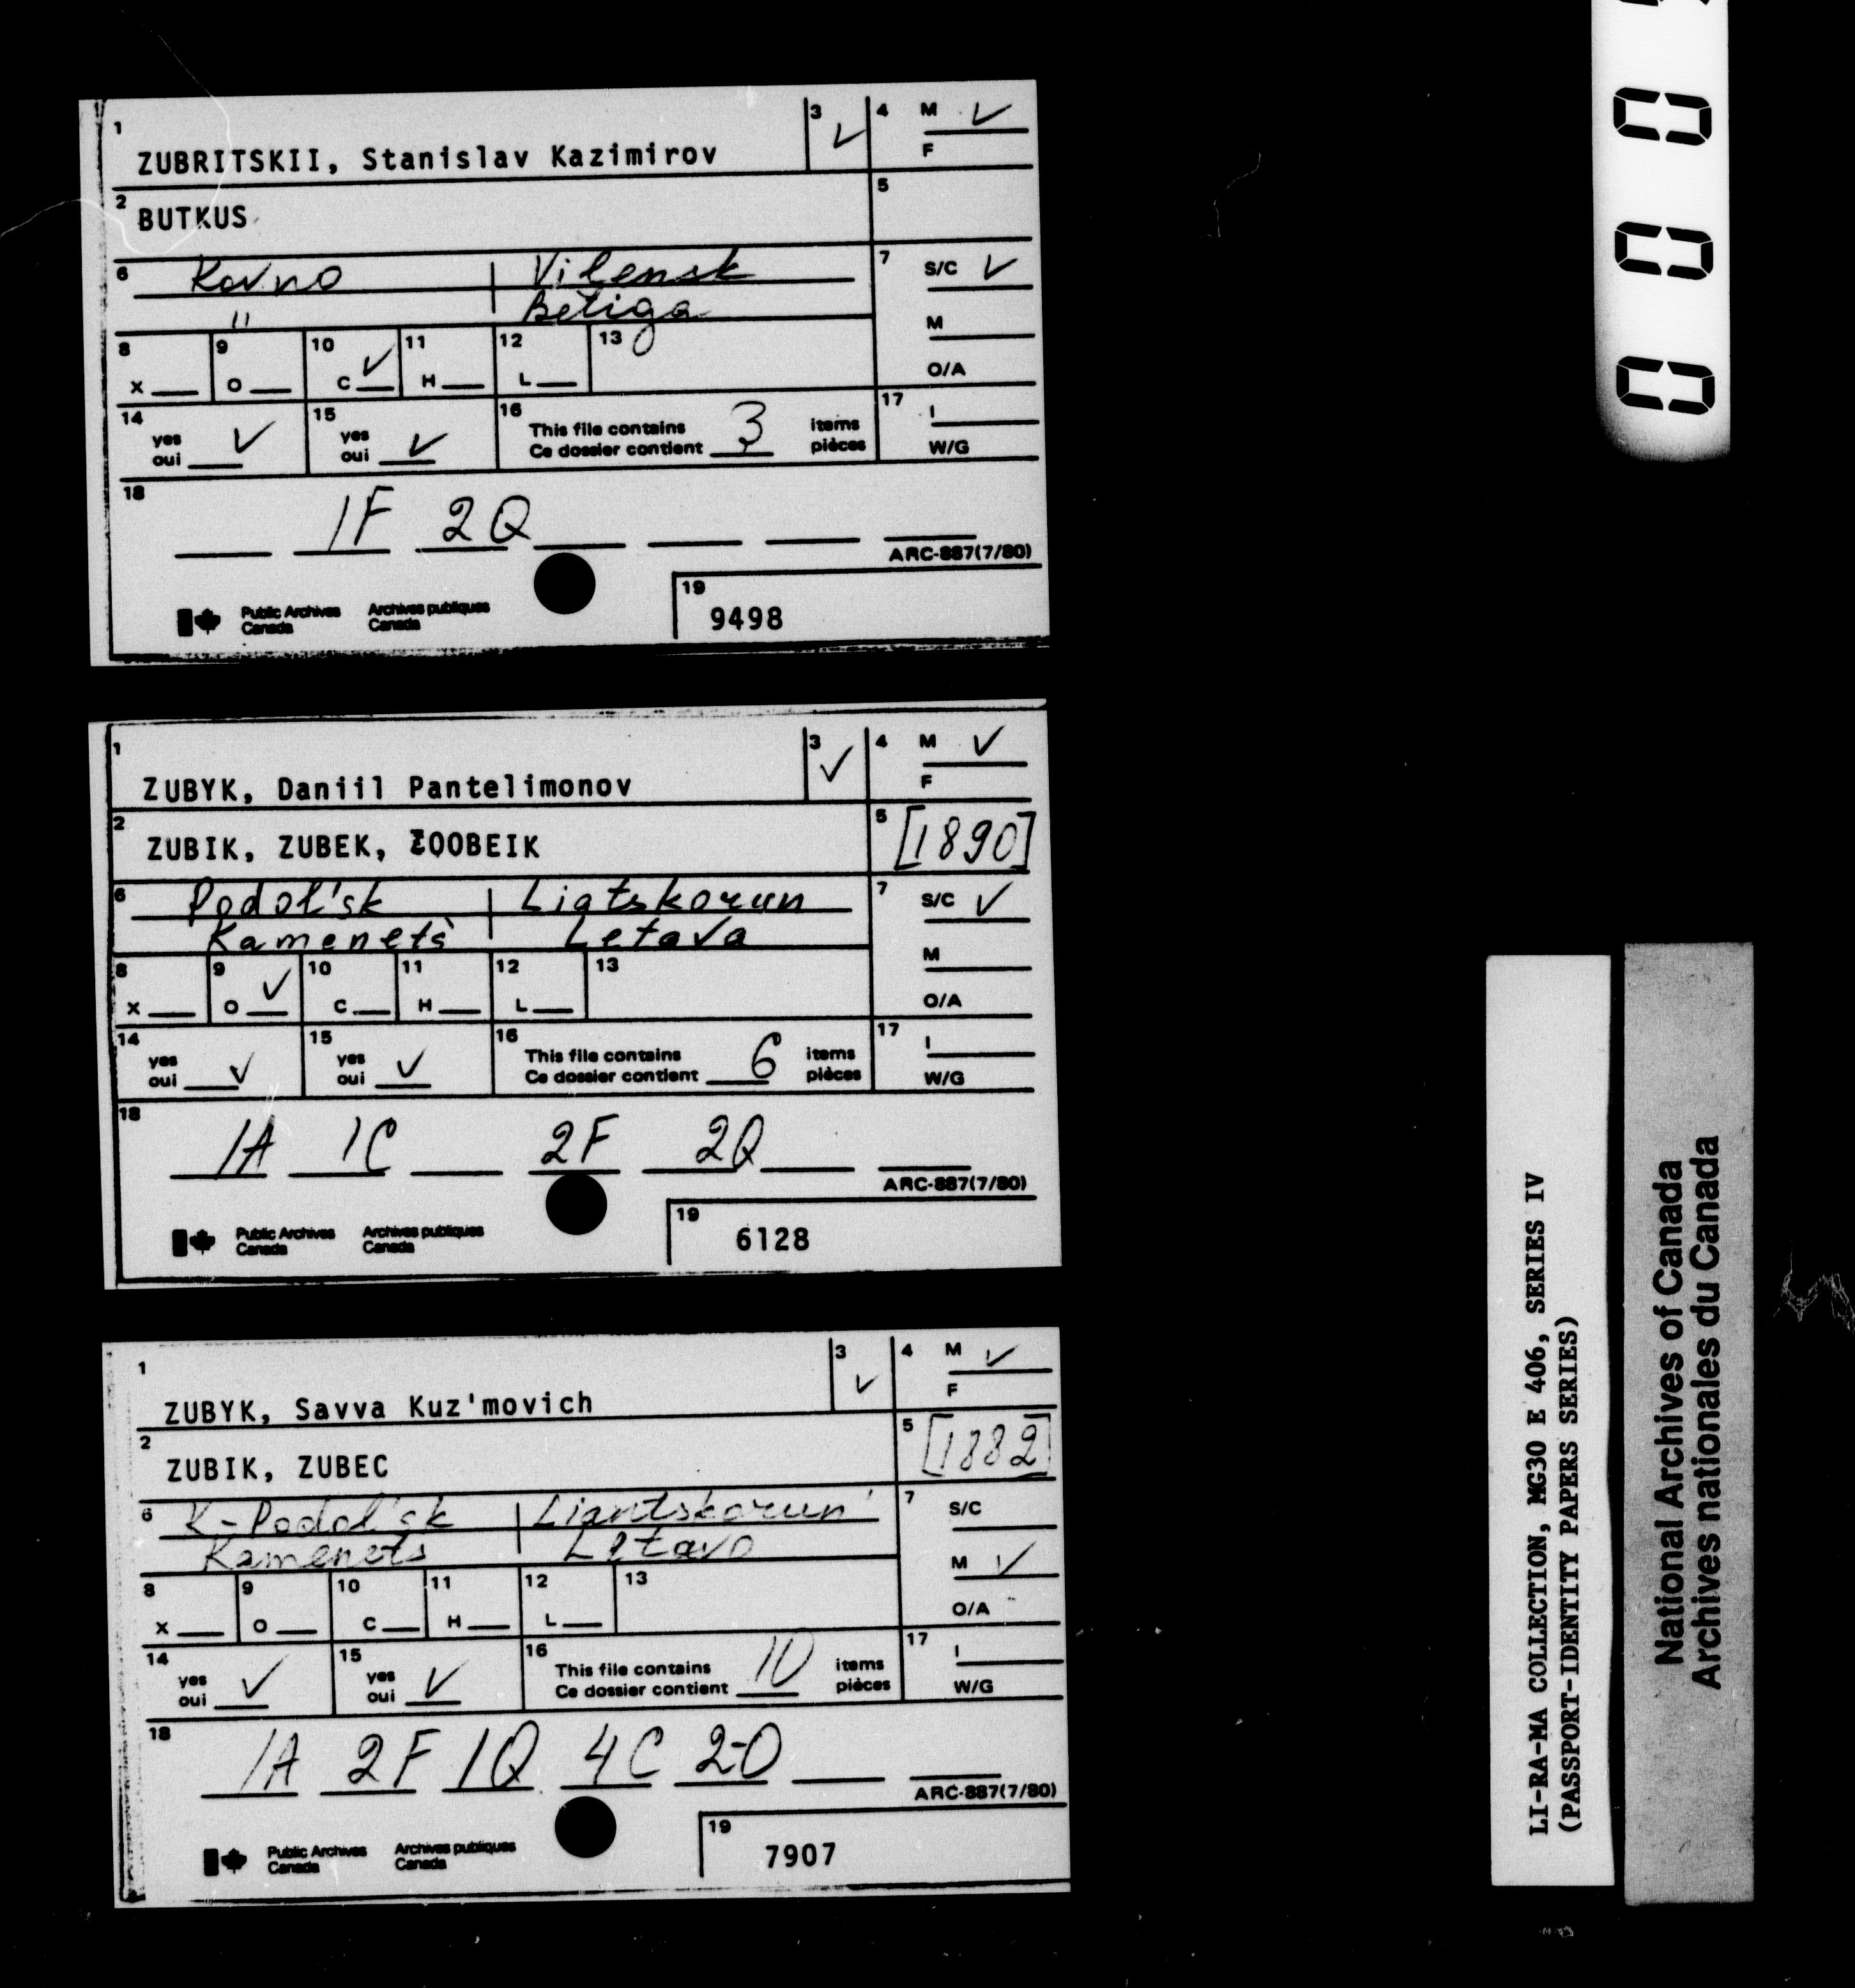 1 3 ✓ 4 M ✓
ZUBRITSKII, Stanislav Kazimirov F
2 BUTKUS 5
6 Kovno Vilensk 7 S/C ✓
" Betiga M
8 X 9 O 10 C ✓ 11 H 12 L 13 O/A
14 yes oui ✓ 15 yes oui ✓ 16 This file contains 3 items 17 I
Ce dossier contient pièces W/G
18 1F 2Q
ARC-887(7/80)
Public Archives Canada Archives publiques Canada 19 9498
1 3 ✓ 4 M ✓
ZUBYK, Daniil Pantelimonov F
2 ZUBIK, ZUBEK, ZOOBEIK 5 [1890]
6 Podol'sk Liatskorun 7 S/C ✓
Kamenets Letava M
8 X 9 O ✓ 10 C 11 H 12 L 13 O/A
14 yes oui ✓ 15 yes oui ✓ 16 This file contains 6 items 17 I
Ce dossier contient pièces W/G
18 1A 1C 2F 2Q
ARC-887(7/80)
Public Archives Canada Archives publiques Canada 19 6128
1 3 ✓ 4 M ✓
ZUBYK, Savva Kuz'movich F
2 ZUBIK, ZUBEC 5 [1882]
6 K-Podol'sk Liantskorun' 7 S/C
Kamenets Letavo M ✓
8 X 9 O 10 C 11 H 12 L 13 O/A
14 yes oui ✓ 15 yes oui ✓ 16 This file contains 10 items 17 I
Ce dossier contient pièces W/G
18 1A 2F 1Q 4C 2-O
ARC-887(7/80)
Public Archives Canada Archives publiques Canada 19 7907
0 0 0
LI-RA-MA COLLECTION, MG30 E 406, SERIES IV
(PASSPORT-IDENTITY PAPERS SERIES)
National Archives of Canada
Archives nationales du Canada